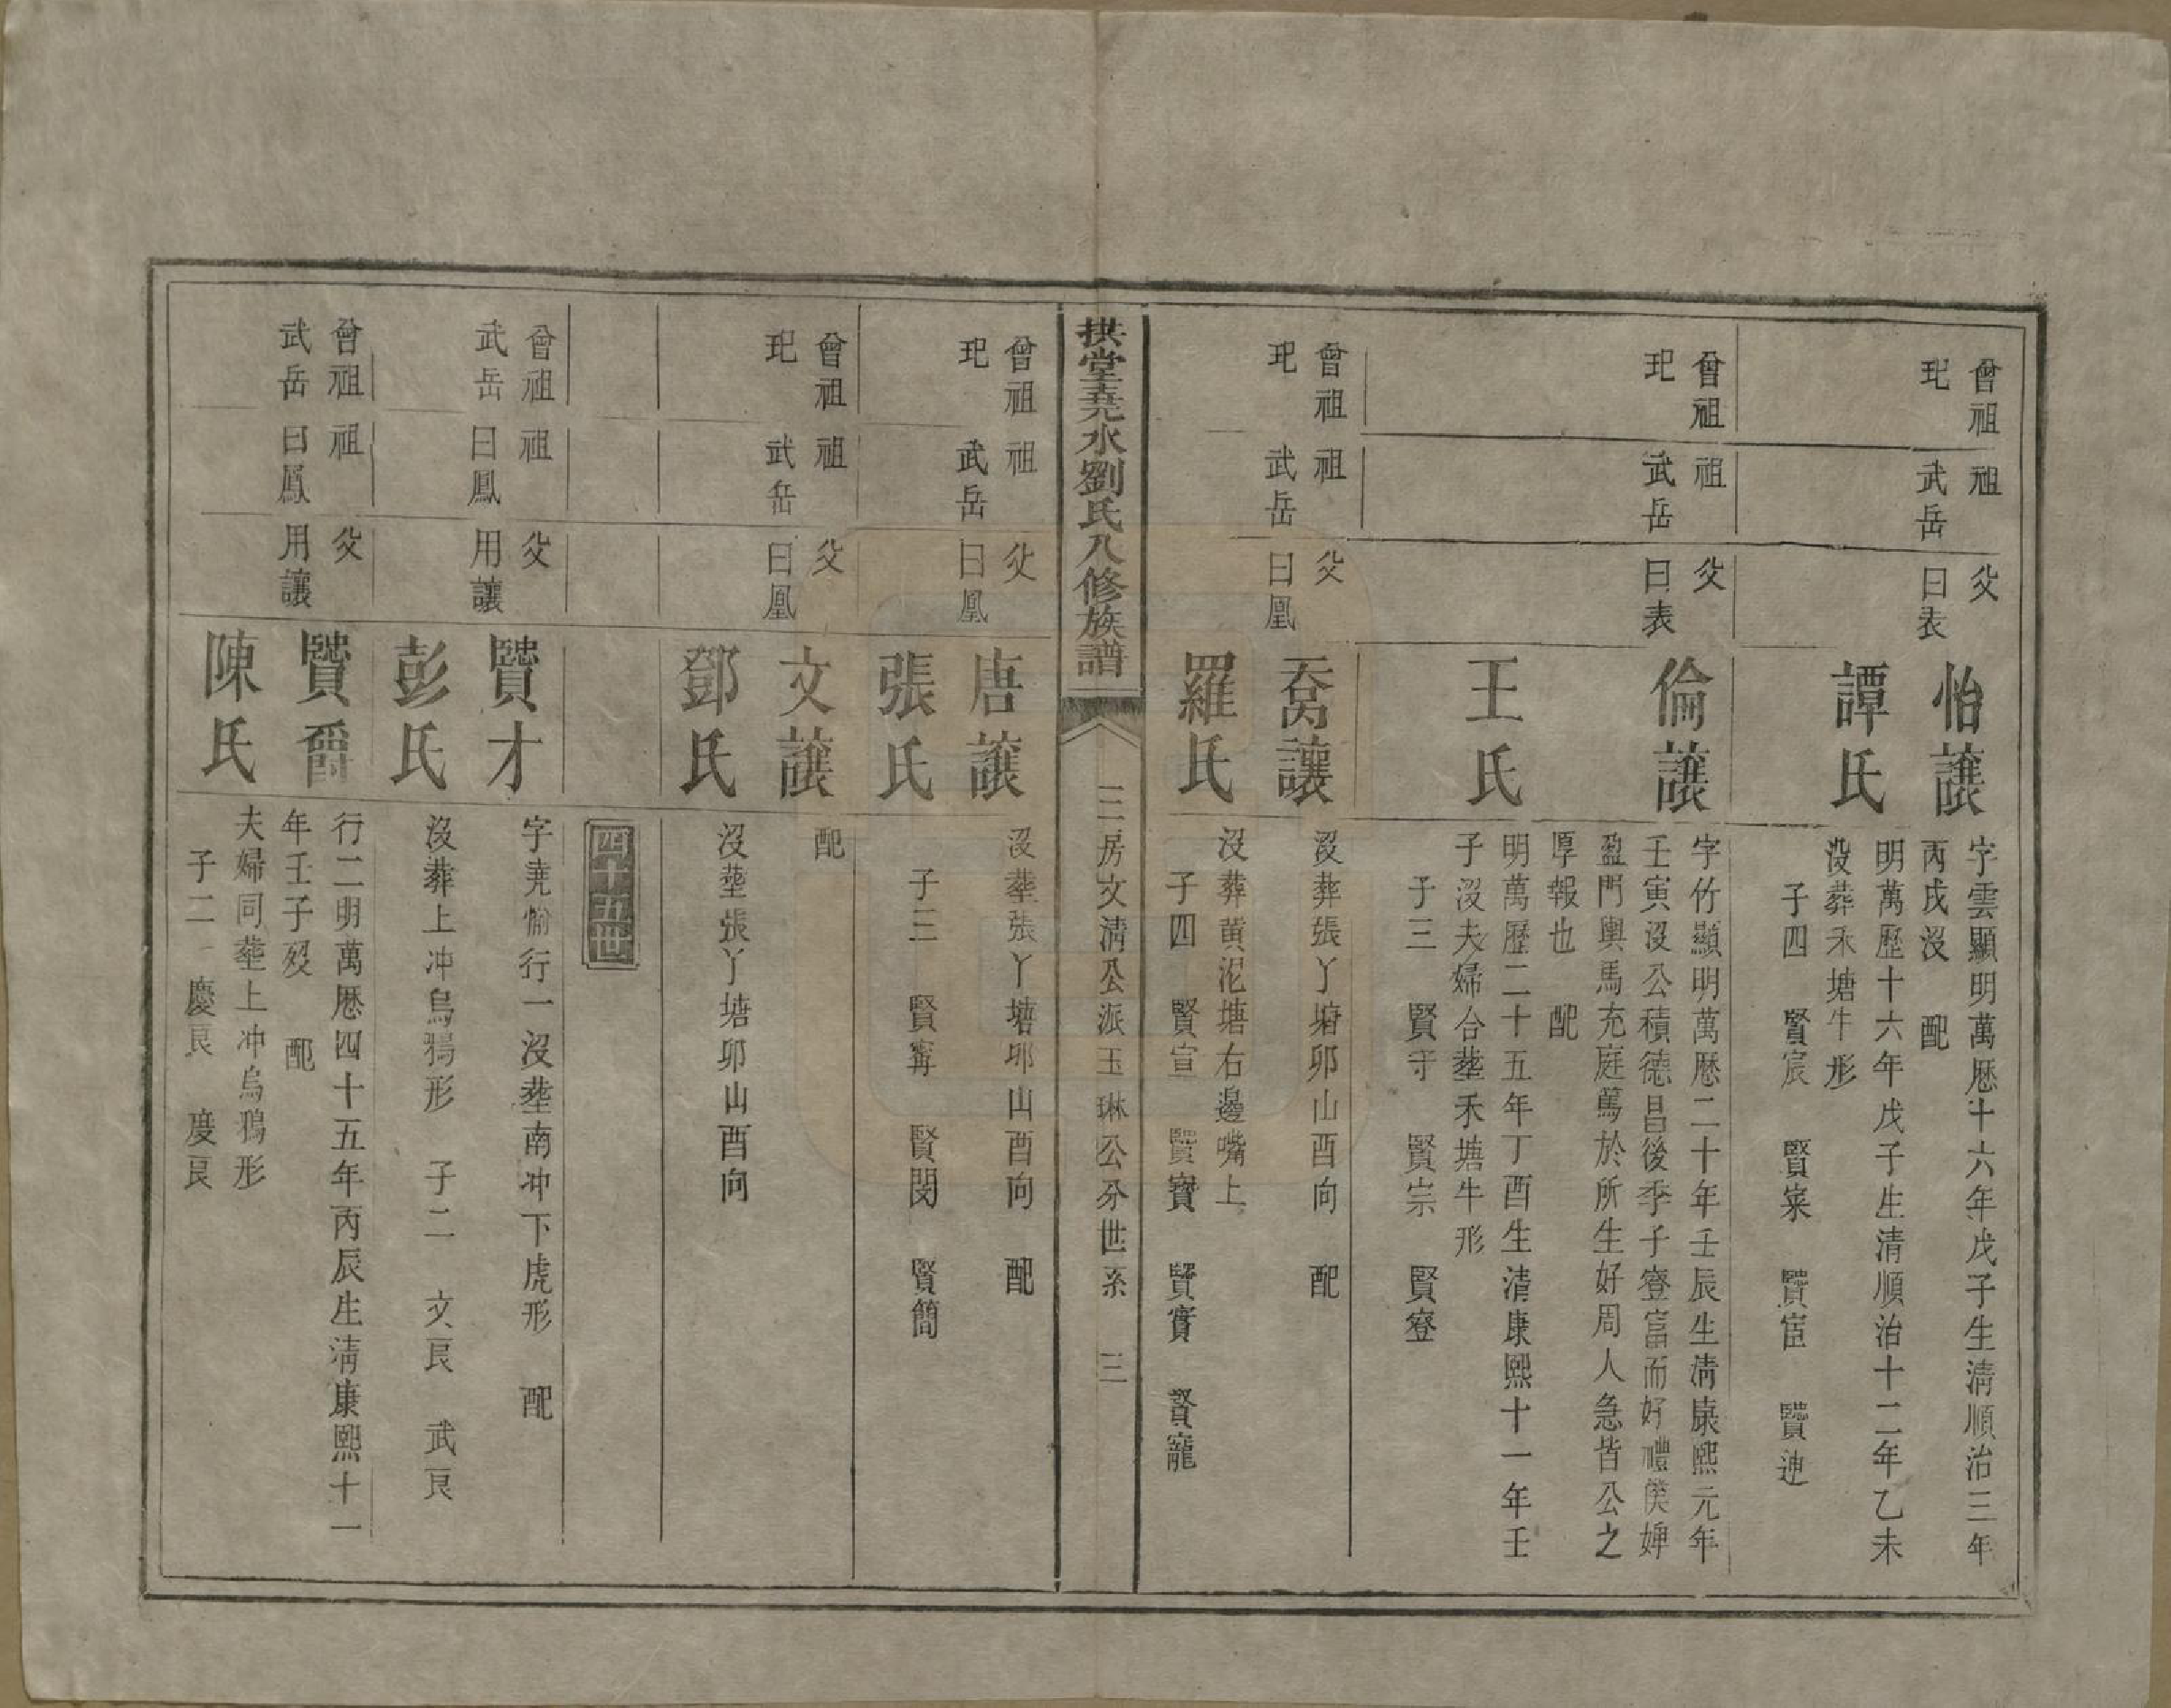 曾祖
玘
祖
武岳
父
曰表
怡讓
譚氏
字雲顯明萬歷十六年戊子生清順治三年
丙戌沒 配
明萬歷十六年戊子生清順治十二年乙未
沒葬禾塘牛形
子四 賢宸 賢寀 賢宦 賢迪
曾祖
玘
祖
武岳
父
曰表
倫讓
王氏
字竹顯明萬歷二十年壬辰生清康熙元年
壬寅沒公積德昌後季子寮富而好禮僕婢
盈門輿馬充庭篤於所生好周人急皆公之
厚報也 配
明萬歷二十五年丁酉生清康熙十一年壬
子沒夫婦合塟禾塘牛形
子三 賢守 賢宗 賢寮
曾祖
玘
祖
武岳
父
曰凰
喬讓
羅氏
沒葬張丫塘卯山酉向 配
沒葬黄泥塘右邊嘴上
子四 賢宣 賢寶 賢實 賢寵
拱堂堯水劉氏八修族譜
三房文清公派玉琳公分世系 三
曾祖
玘
祖
武岳
父
曰凰
唐讓
張氏
沒塟張丫塘卯山酉向 配
子三 賢寗 賢閔 賢簡
曾祖
玘
祖
武岳
父
曰凰
文讓
鄧氏
配
沒塟張丫塘卯山酉向
四十五世
曾祖
武岳
祖
曰鳳
父
用讓
賢才
彭氏
字堯愉行一沒塟南冲下虎形 配
沒葬上冲烏鴉形 子二 文艮 武艮
曾祖
武岳
祖
曰鳳
父
用讓
賢爵
陳氏
行二明萬歷四十五年丙辰生清康熙十一
年壬子歿 配
夫婦同塟上冲烏鴉形
子二 慶艮 度艮